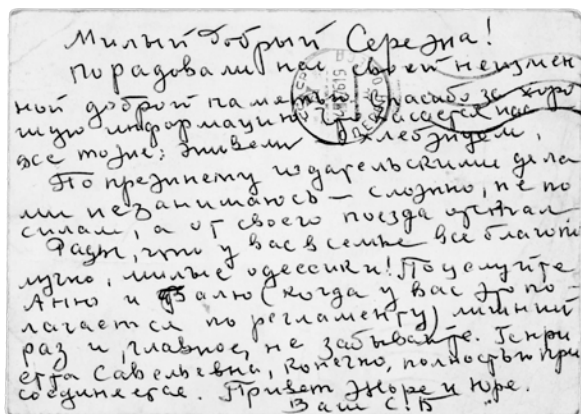 Милый добрый Сережа!
Порадовали нас своей неизмен
ной доброй памятью. Спасибо за хоро
шую информацию. Касается нас
все тоже: живем, хлеб жуем.
По прежнему издательскими дела
ми не занимаюсь – сложно, не по
силам, а от своего поезда отстал.
Рады, что у вас в семье все благопо
лучно, милые одессики! Поцелуйте
Аню и Валю (когда у вас это по
лагается по регламенту) лишний
раз и, главное, не забывайте. Генри
етта Савельевна, конечно, полностью при
соединяется. Привет Жоре и Юре.
Ваш С.Б